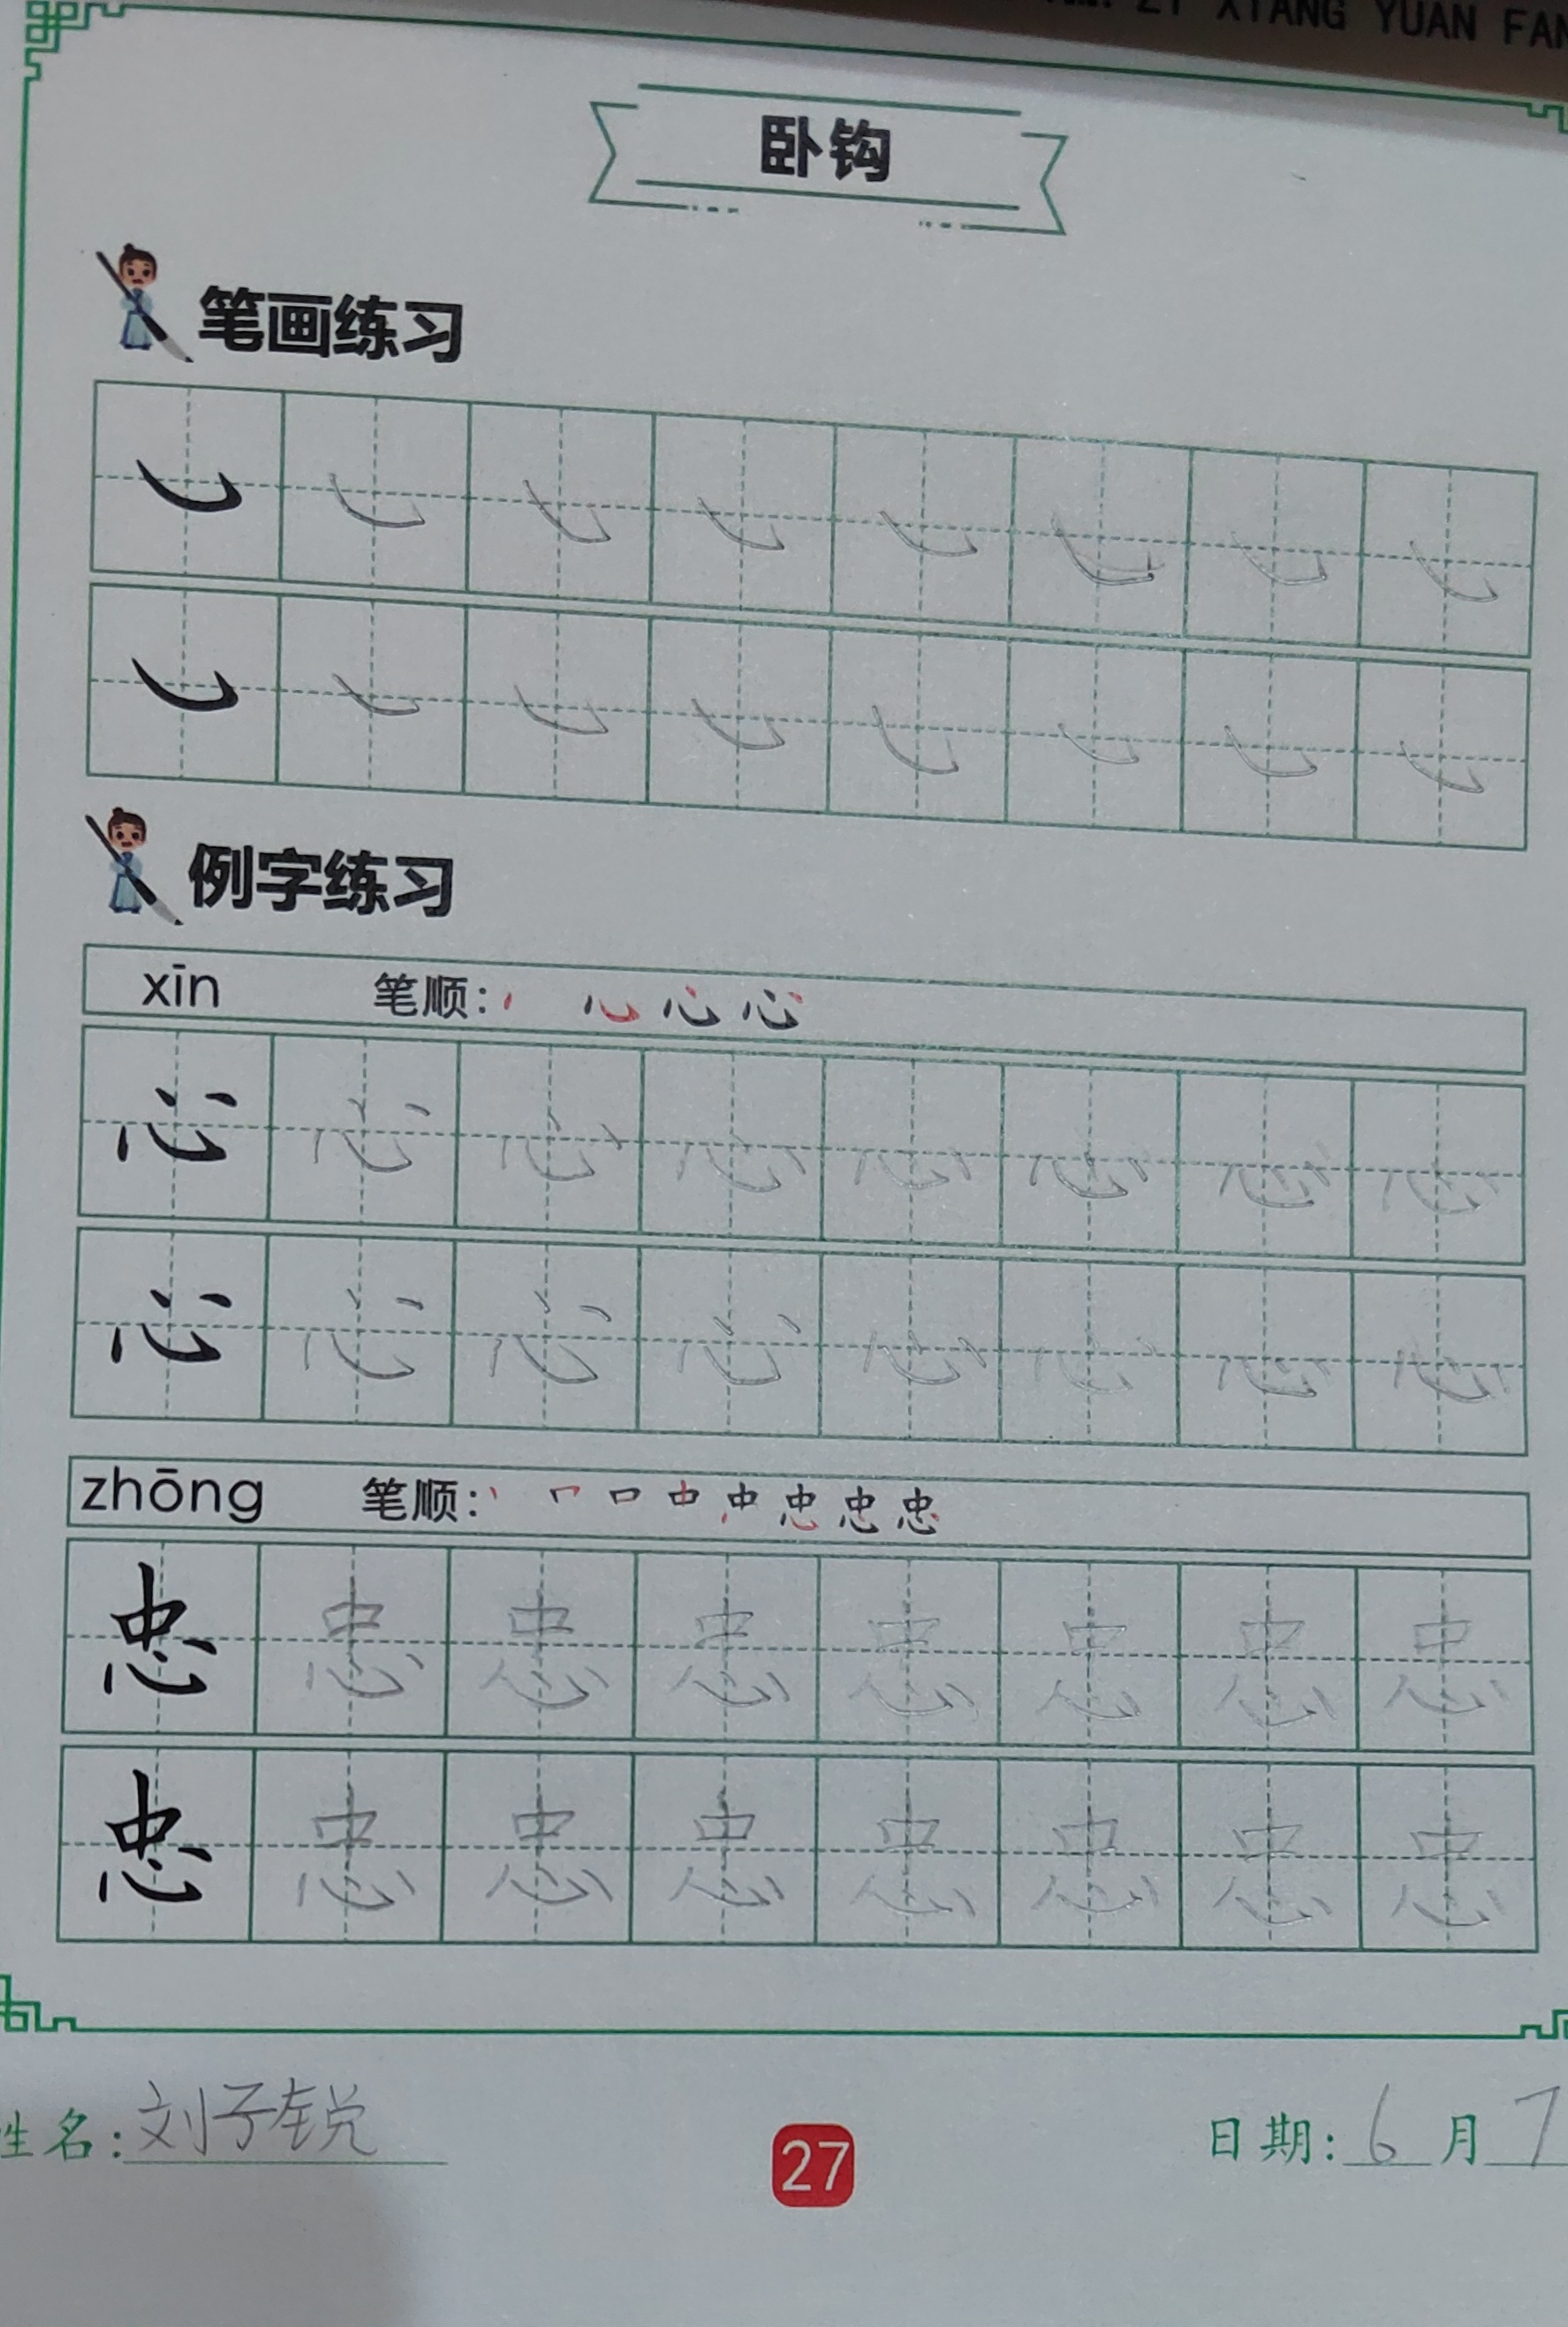 ZI XIANG YUAN FAN
卧钩
笔画练习
例字练习
xīn 笔顺: 丶 心 心
心 心 心 心 心 心 心 心
心 心 心 心 心 心 心 心
zhōng 笔顺: 丨 口 中 忠
忠 忠 忠 忠 忠 忠 忠 忠
忠 忠 忠 忠 忠 忠 忠 忠
姓名: 刘子锐 27 日期: 6 月 7